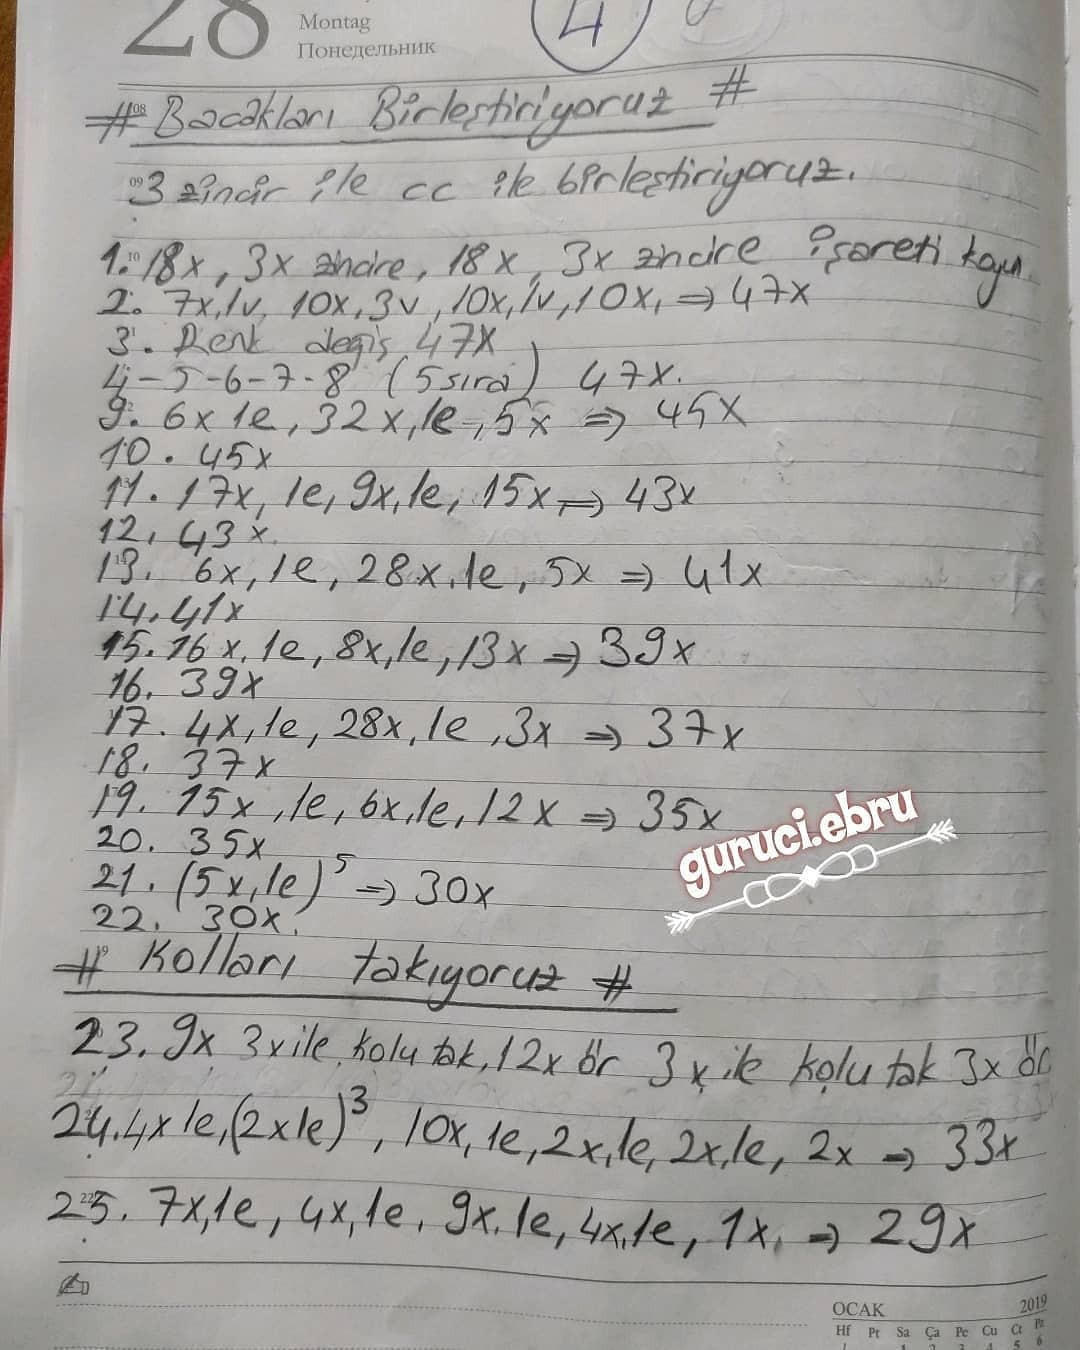 28
Montag
Понедельник
4
# Bacakları Birleştiriyoruz #
3 zincir ile cc ile birleştiriyoruz.
1. 18x, 3x zincire, 18x, 3x zincire işareti koyun
2. 7x,1v, 10x,3v,10x,1v,10x, ⇒ 47x
3. Renk değiş 47x
4-5-6-7-8 (5 sıra) 47x.
9. 6x 1e, 32x,1e, 5x ⇒ 45x
10. 45x
11. 17x, 1e, 9x,1e, 15x ⇒ 43x
12, 43x.
13. 6x, 1e, 28x,1e, 5x ⇒ 41x
14. 41x
15. 16x, 1e, 8x,1e,13x ⇒ 39x
16. 39x
17. 4x,1e, 28x,1e,3x ⇒ 37x
18. 37x
19. 15x,1e, 6x,1e,12x ⇒ 35x
20. 35x
21. (5x,1e)⁵ ⇒ 30x
22. 30x.
guruci.ebru
# Kolları takıyoruz #
23. 9x 3x ile kolu tak, 12x ör 3x ile kolu tak 3x ör
24. 4x 1e,(2x1e)³, 10x, 1e,2x,1e, 2x,1e, 2x ⇒ 33x
25. 7x,1e, 4x,1e, 9x,1e, 4x,1e, 1x, ⇒ 29x
OCAK 2019
Hf Pt Sa Ça Pe Cu Ct Pz
1 2 3 4 5 6